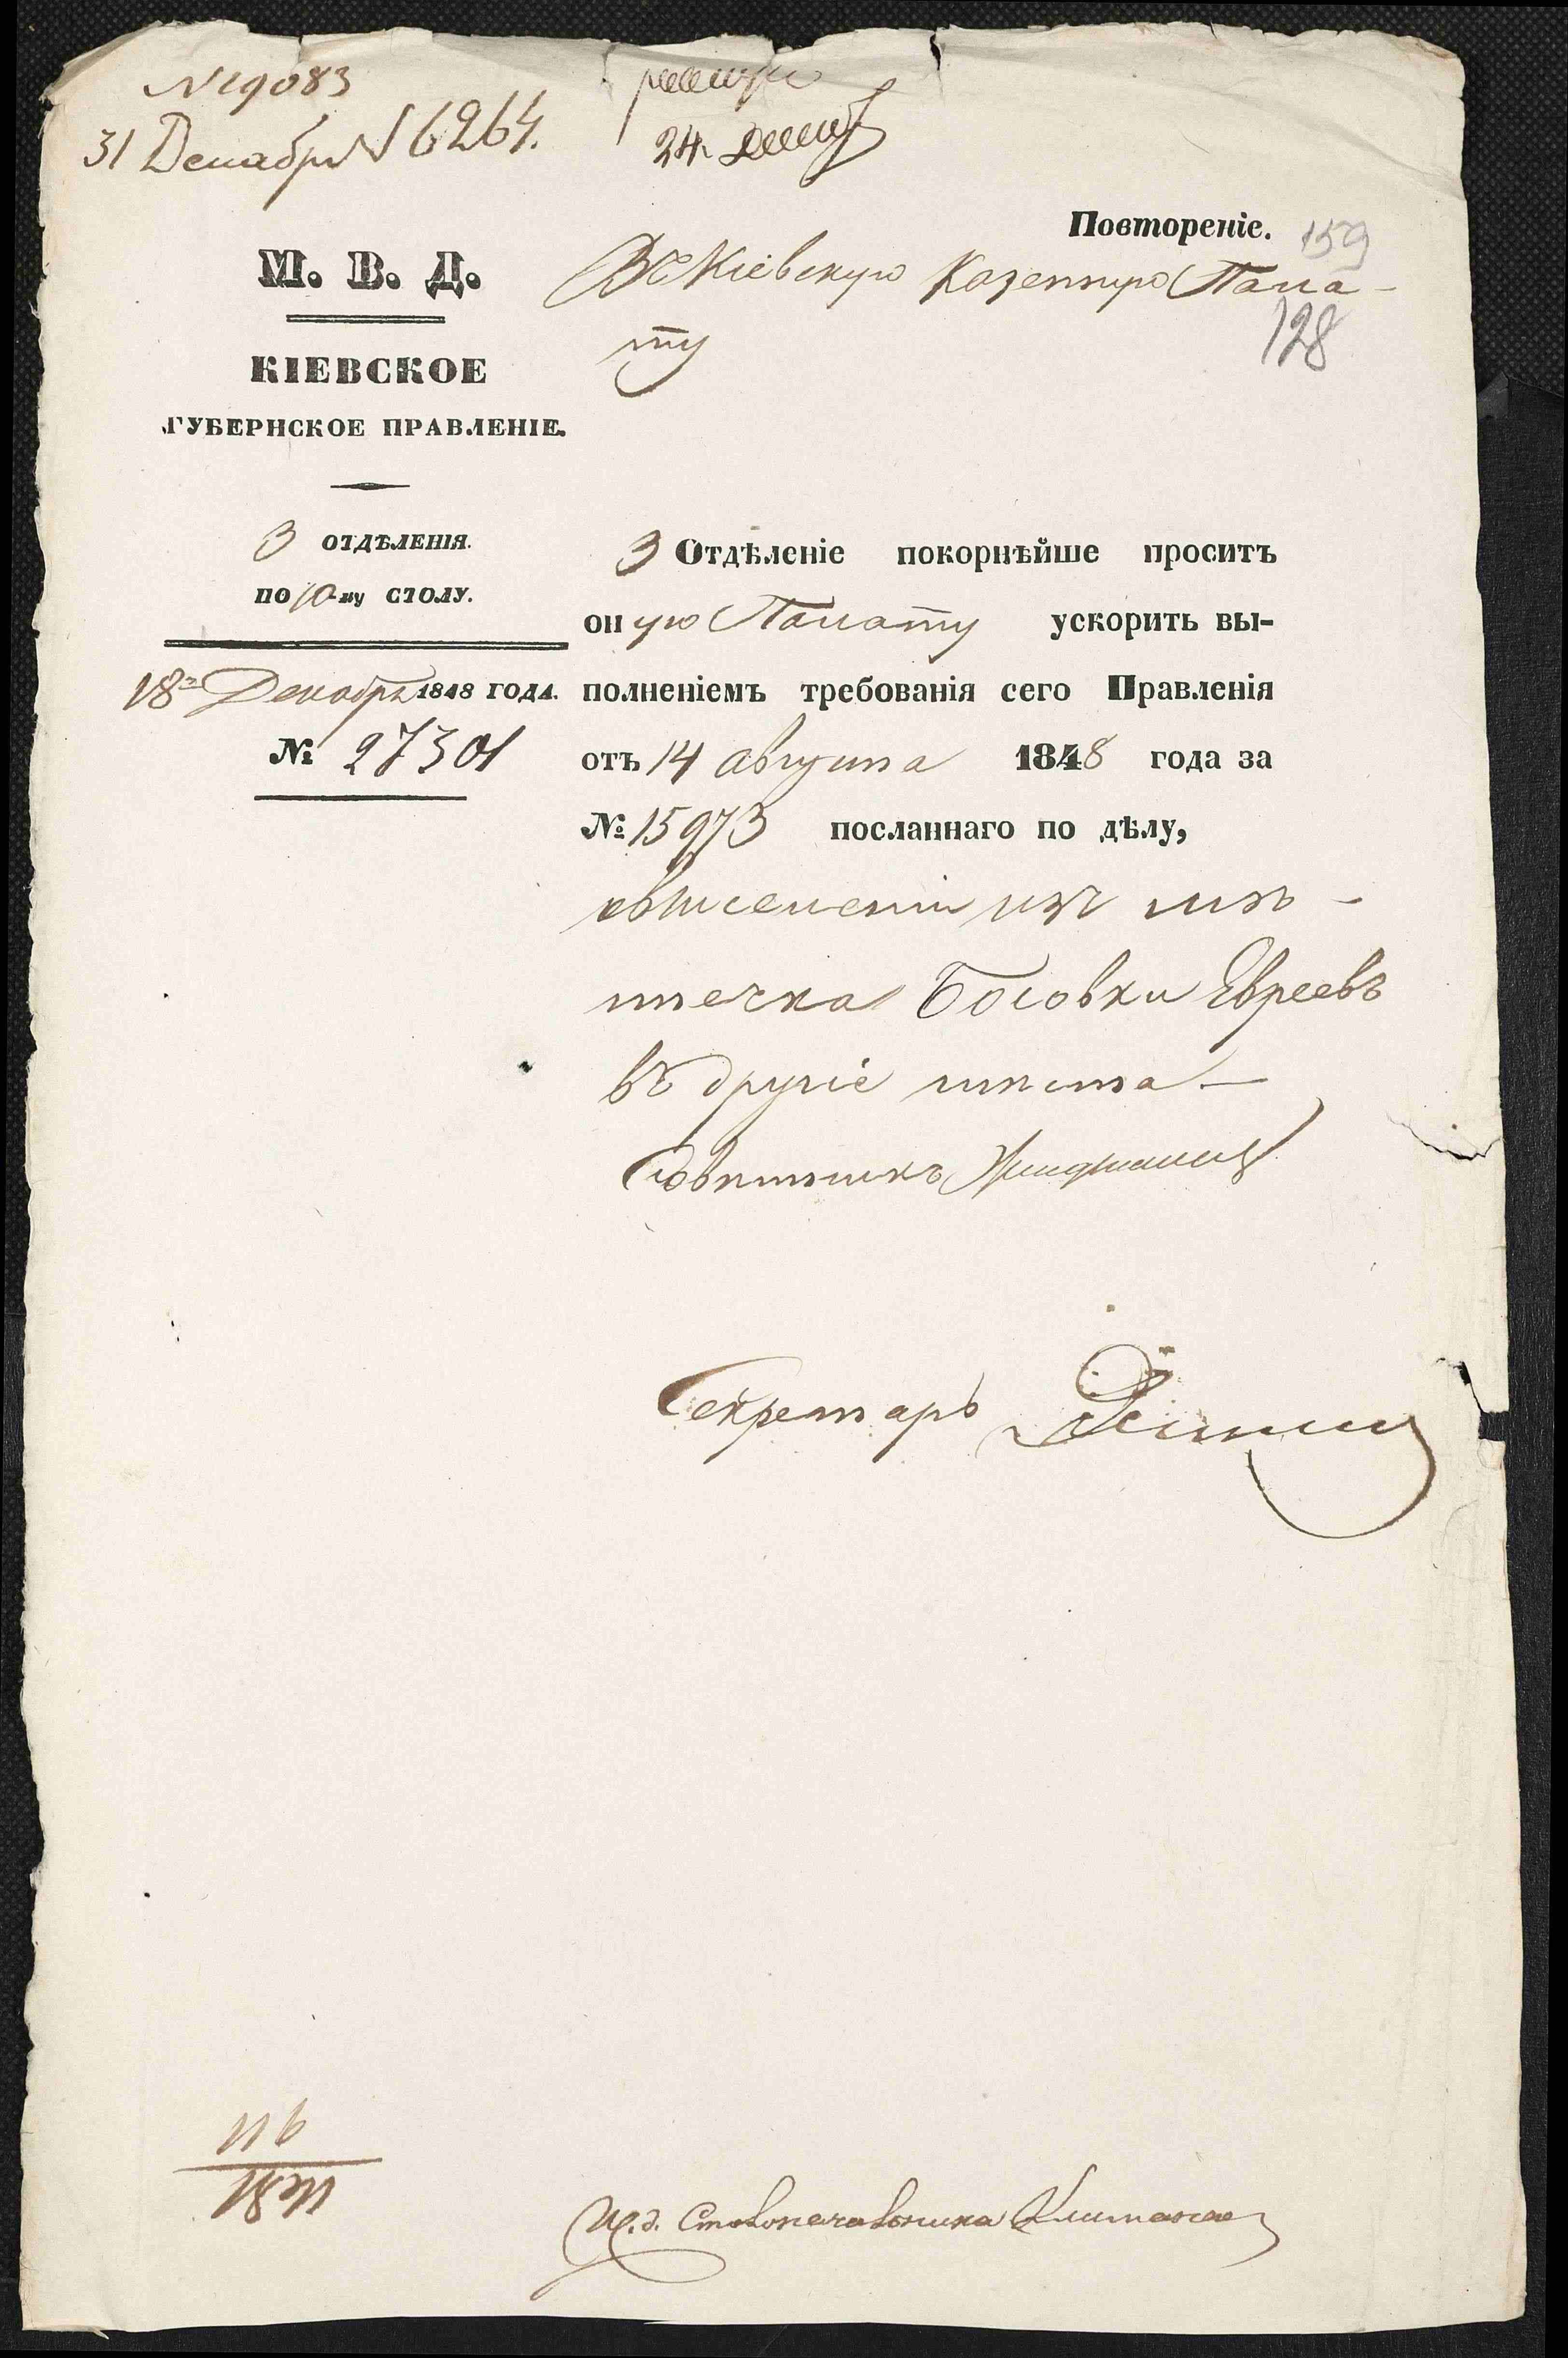 № 19083
31 Декабря № 6264.
24 Декаб
Повтореніе.
159
128
М. В. Д.
КІЕВСКОЕ
ГУБЕРНСКОЕ ПРАВЛЕНІЕ.
3 ОТДѢЛЕНІЯ.
ПО 10-му СТОЛУ.
18 Декабря 1848 ГОДА.
№ 27301
Въ Кіевскую Казенную Пала-
ту
3 Отдѣленіе покорнѣйше проситъ
оную Палату ускорить вы-
полненіемъ требованія сего Правленія
отъ 14 августа 1848 года за
№ 15973 посланнаго по дѣлу,
о выселеніи изъ мѣ-
стечка Босовки Евреевъ
въ другіе мѣста
Совѣтникъ
Секретарь
И. д. Столоначальника